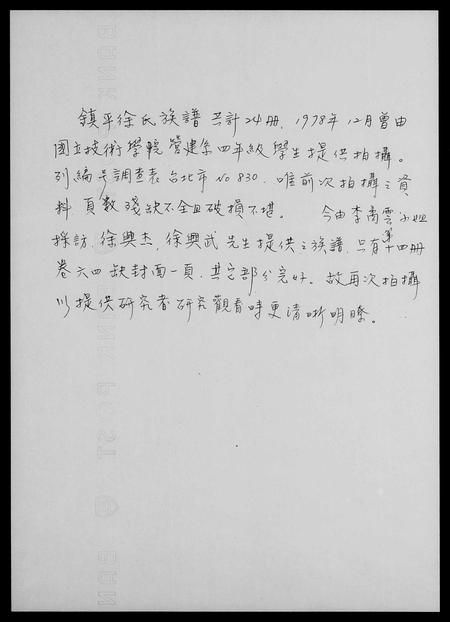 鎮平徐氏族譜共計24册，1978年12月曾由
國立技術學院營建系四年級學生提供拍攝。
列編号調查表台北市No 830. 唯前次拍攝之資
料頁數殘缺不全且破損不堪。 今由李高雲小姐
採訪、徐興杰、徐興武先生提供之族譜、只有第十四册
卷六四缺封面一頁、其它部分完好。故再次拍攝
以提供研究者研究觀看時更清晰明瞭。